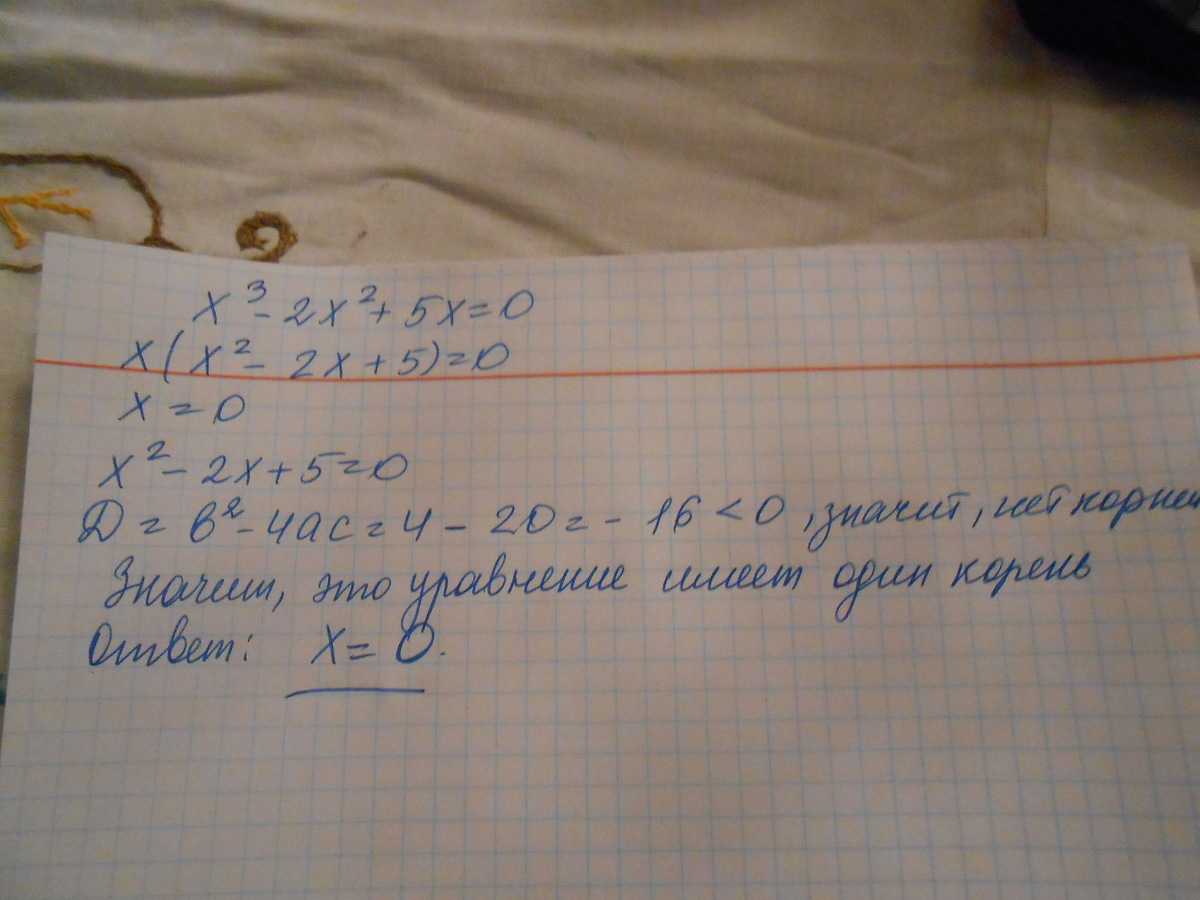 x³ - 2x² + 5x = 0
x(x² - 2x + 5) = 0
x = 0
x² - 2x + 5 = 0
D = в² - 4ac = 4 - 20 = - 16 < 0, значит, нет корней
Значит, это уравнение имеет один корень
Ответ: x = 0.